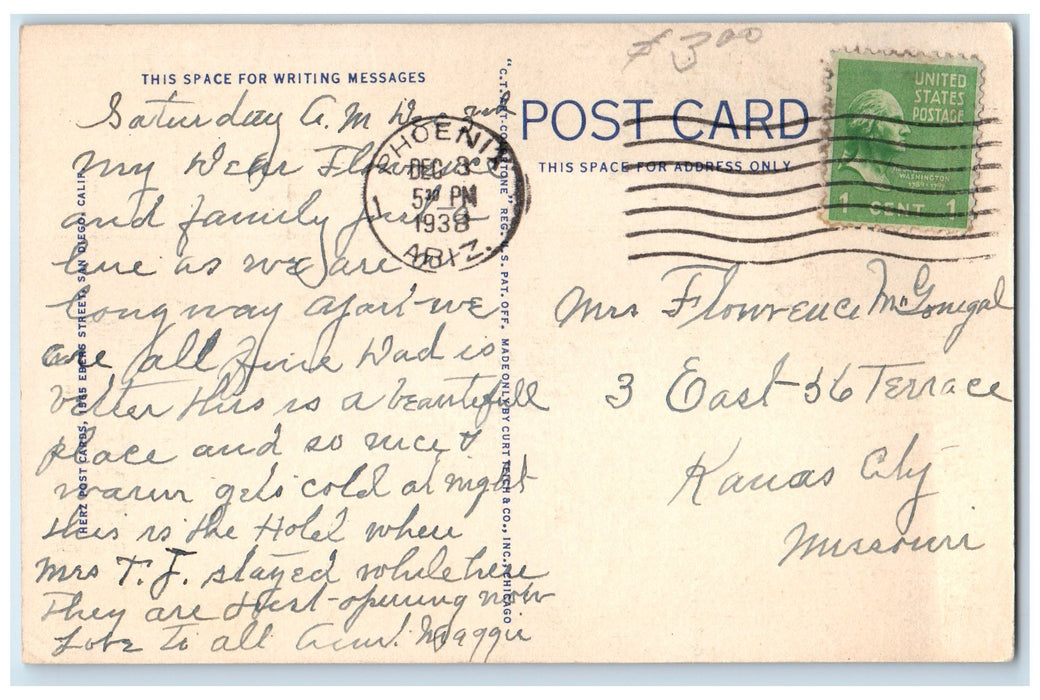 $3.00
THIS SPACE FOR WRITING MESSAGES
POST CARD
THIS SPACE FOR ADDRESS ONLY
UNITED
STATES
POSTAGE
WASHINGTON
1789-1797
1 CENT 1
PHOENIX
DEC 3
5 30 PM
1938
ARIZ.
1
Saturday A.M Dec 3
My Dear Florence
and family just a
line as we are
long way apart we
are all fine Dad is
better this is a beautifull
place and so nice &
warm gets cold at night
this is the Hotel where
Mrs T. J. stayed while here
They are Just opening now
Love to all Aunt Maggie
Mrs Flowrence McGonigal
3 East 56 Terrace
Kanas City
Missouri
HERZ POST CARDS, 1965 EBERS STREET, SAN DIEGO, CALIF.
"C.T. ART-COLORTONE" REG. U.S. PAT. OFF. MADE ONLY BY CURT TEICH & CO., INC., CHICAGO